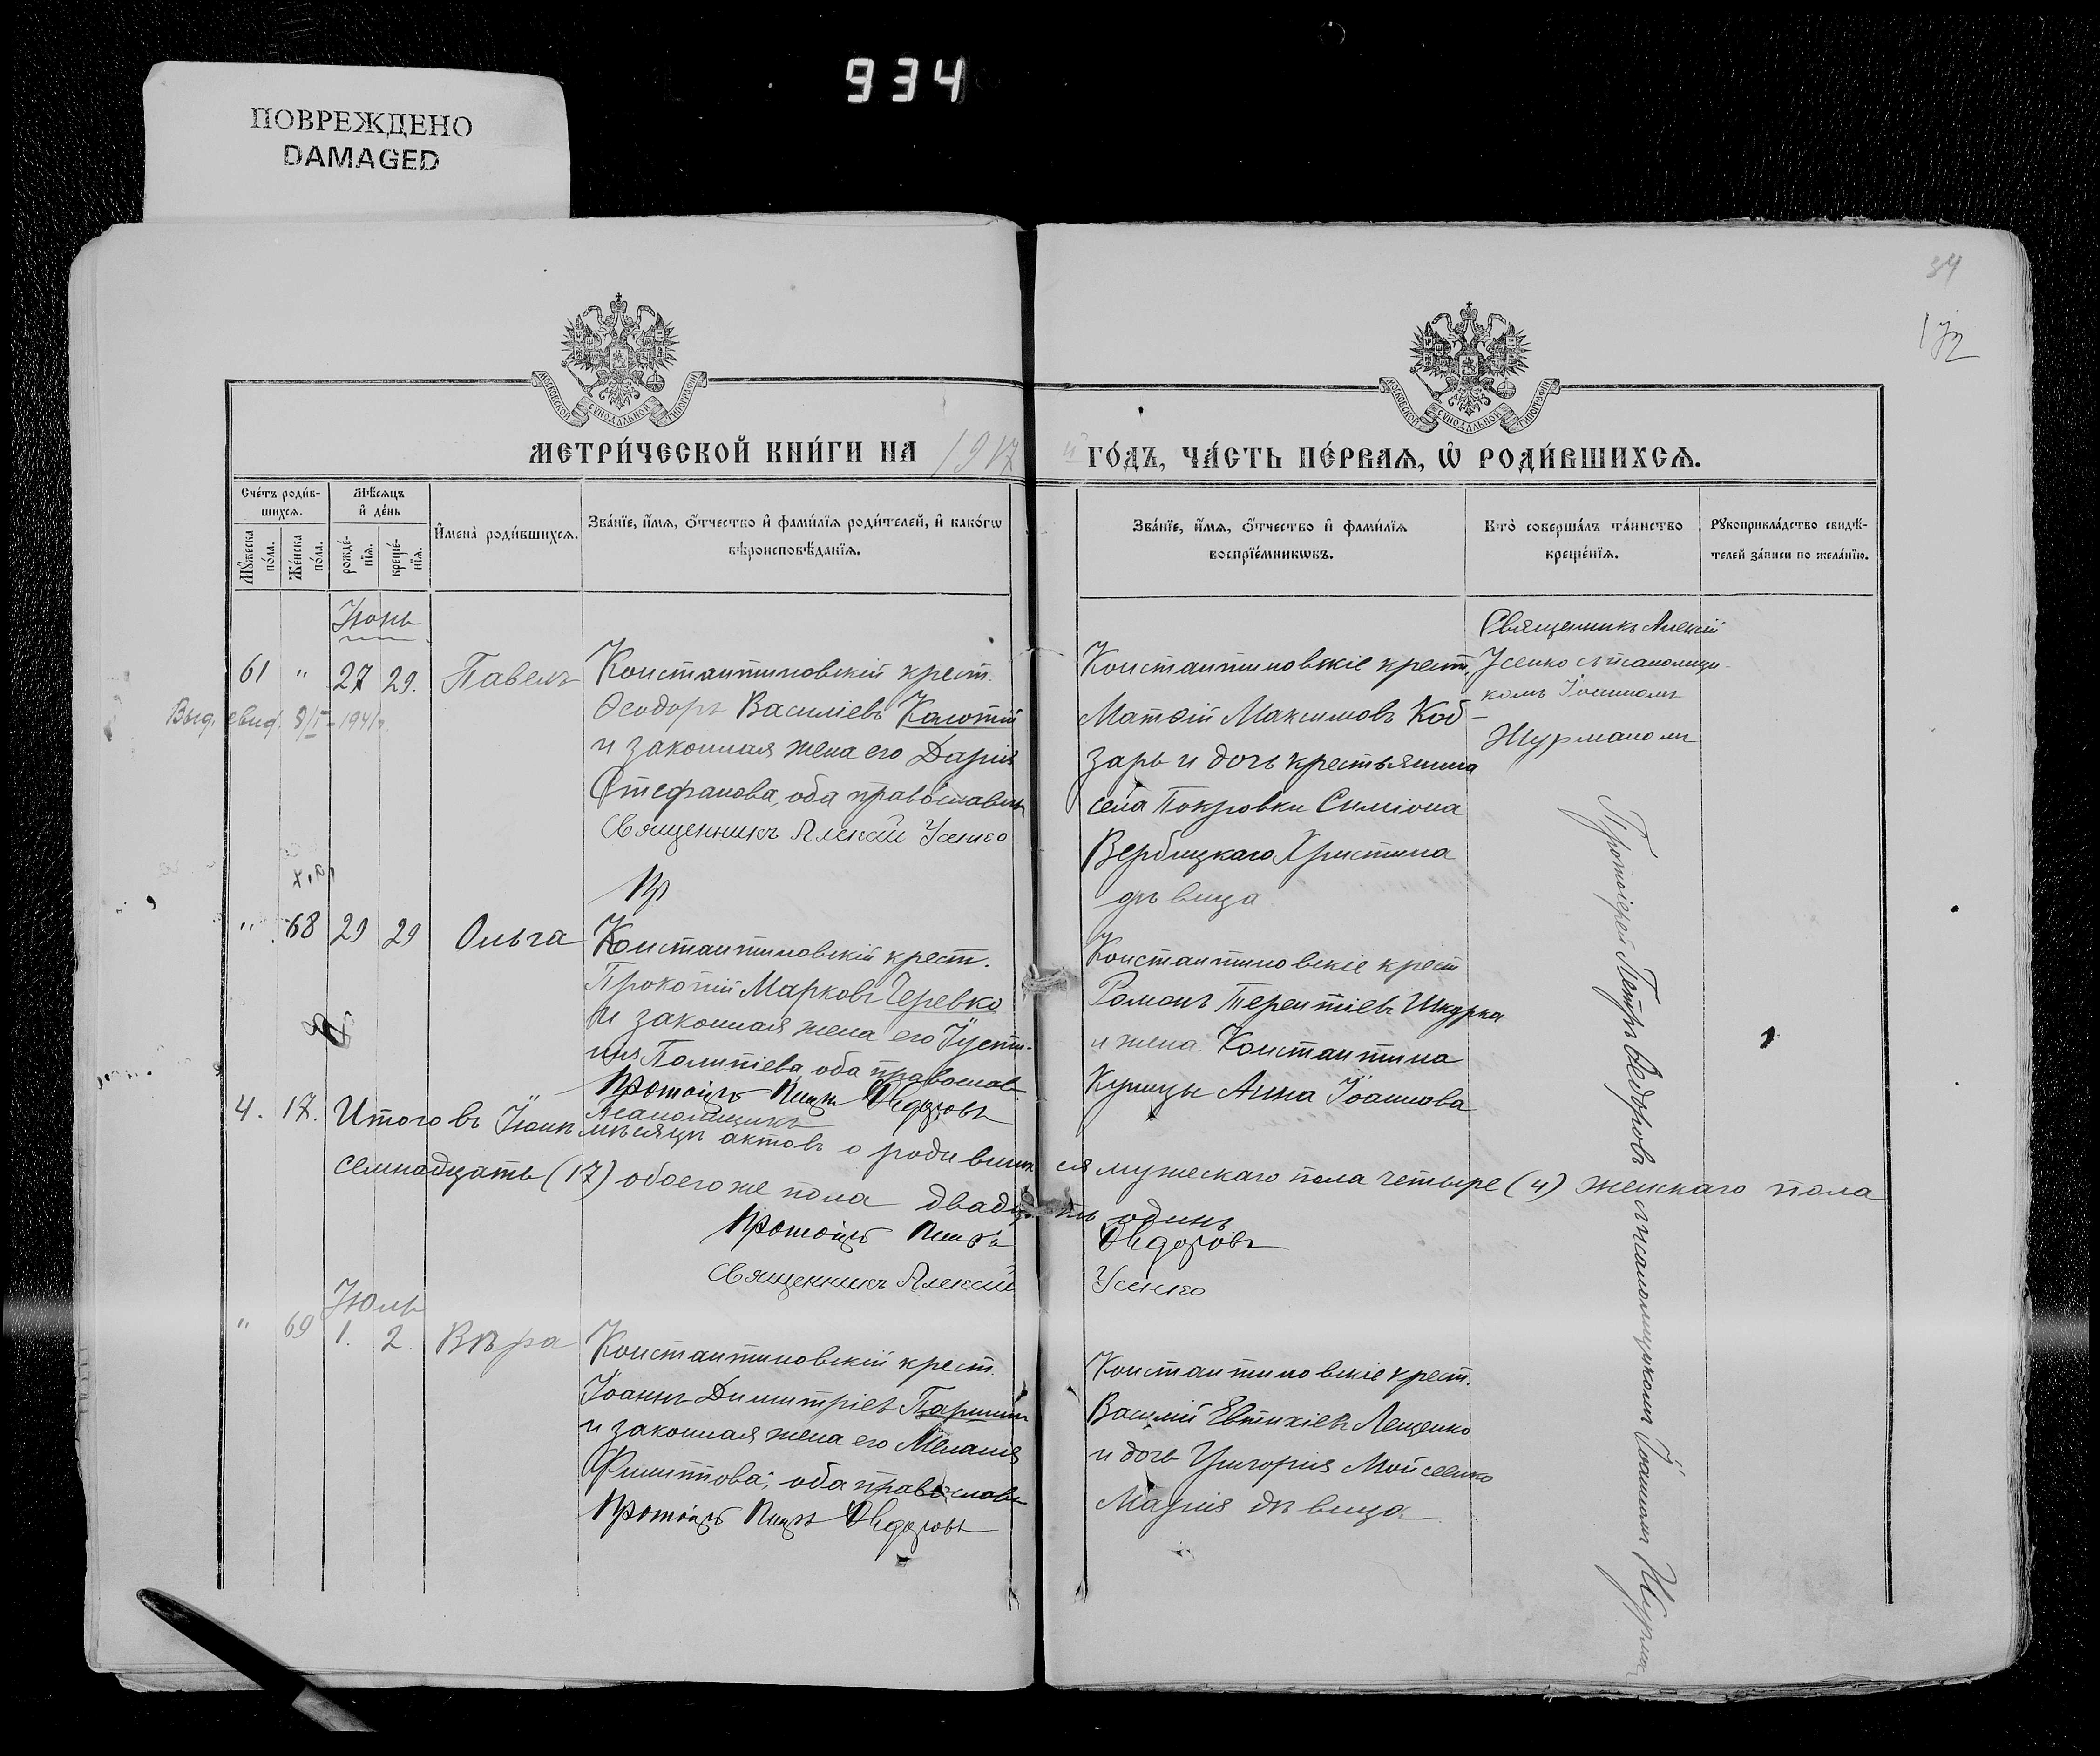 934
ПОВРЕЖДЕНО
DAMAGED
34
172
МОСКОВСКОЙ СУНОДАЛЬНОЙ ТИПОГРАФІИ
МОСКОВСКОЙ СУНОДАЛЬНОЙ ТИПОГРАФІИ
МЕТРИ́ЧЕСКОЙ КНИ́ГИ НА 1917 й ГО́ДЪ, ЧА́СТЬ ПЕ́РВАѦ, Ѡ҆ РОДИ́ВШИХСѦ.
Сче́тъ роди́в-
шихсѧ.
Мꙋ́жеска
по́ла.
Же́нска
по́ла.
Мѣ́сѧцъ
и҆ де́нь
рожде́-
нїѧ.
креще́-
нїѧ.
И҆мена̀ роди́вшихсѧ.
Зва́нїе, и҆́мѧ, ѻ҆́тчество и҆ фами́лїѧ роди́телей, и҆ како́гѡ
вѣроисповѣ́данїѧ.
Зва́нїе, и҆́мѧ, ѻ҆́тчество и҆ фами́лїѧ
воспрїе́мникѡвъ.
Кто̀ соверша́лъ та́инство
креще́нїѧ.
Рꙋкоприкла́дство свидѣ́-
телей за́писи по жела́нїю.
Іюнь
61 " 27 29. Павелъ
Выд. свид. 8/I-1941г.
Константиновскій крест.
Ѳеодоръ Василіевъ Калютій
и законная жена его Дарія
Стефанова, оба православн
Священникъ Алексій Усенко
Константиновскіе крест.
Матѳій Максимовъ Коб-
зарь и дочь крестьянина
села Покровки Симіона
Вербицкаго Христина
дѣвица
Священникъ Алексій
Усенко съ псаломщи-
комъ Іоанномъ
Шурманомъ
" 68 29 29 Ольга
Константиновскій крест.
Прокопій Марковъ Черевко
и законная жена его Іусти-
нія Политіева, оба православ
Протоіер Петръ Ѳедоровъ
Псаломщикъ
Константиновскіе крест
Романъ Терентіевъ Шкурка
и жена Константина
Куницы Анна Іоаннова
Протоіерей Петръ Ѳедоровъ съ псаломщикомъ Іоанномъ Шурма
4. 17. Итого въ Іюнѣ мѣсяцѣ актовъ о родившихся мужескаго пола четыре (4) женскаго пола
семнадцать (17) обоего же пола двадцать одинъ
Протоіер Петръ Ѳедоровъ
Священникъ Алексій Усенко
Іюль
" 69 1. 2. Вѣра
Константиновскій крест.
Іоаннъ Димитріевъ Паршин
и законная жена его Меланія
Филиппова; оба православн
Протоіер Петръ Ѳедоровъ
Константиновскіе крест.
Василій Евтихіевъ Лещенко
и дочь Григорія Мойсеенко
Марія дѣвица